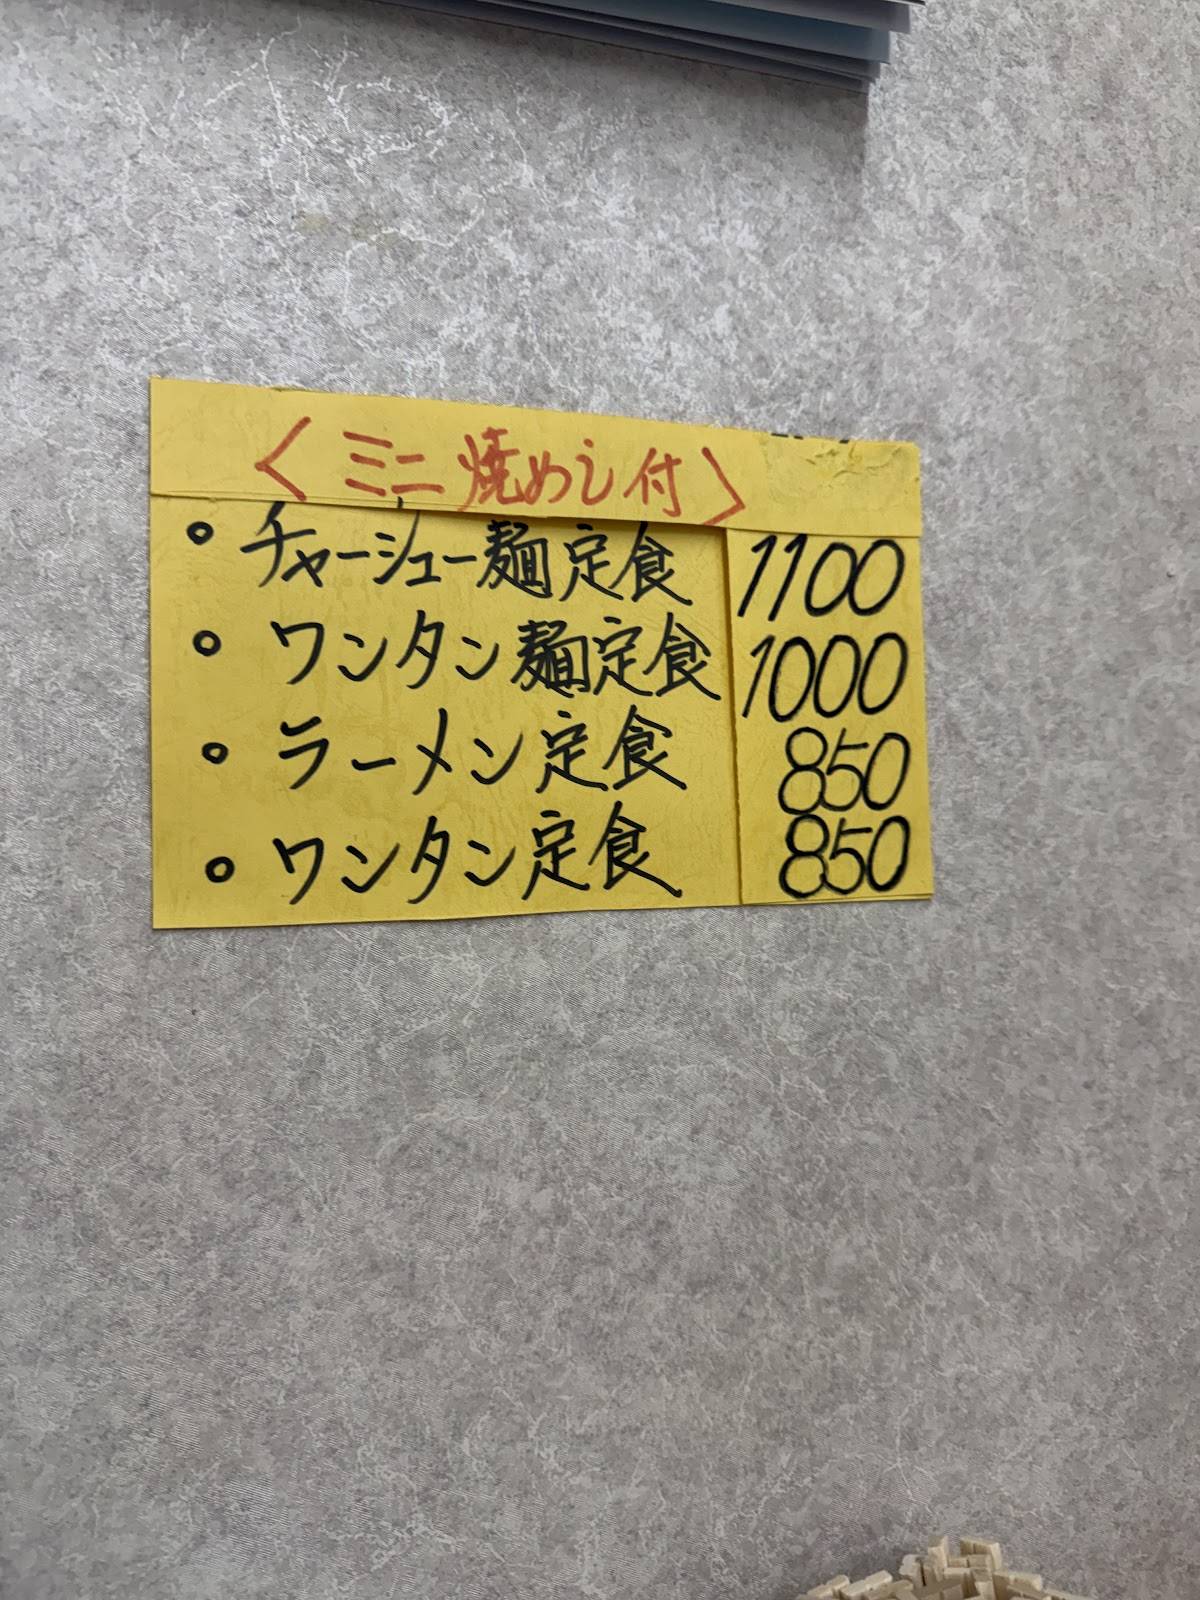 〈ミニ焼めし付〉
○ チャーシュー麺定食 1100
○ ワンタン麺定食 1000
○ ラーメン定食 850
○ ワンタン定食 850